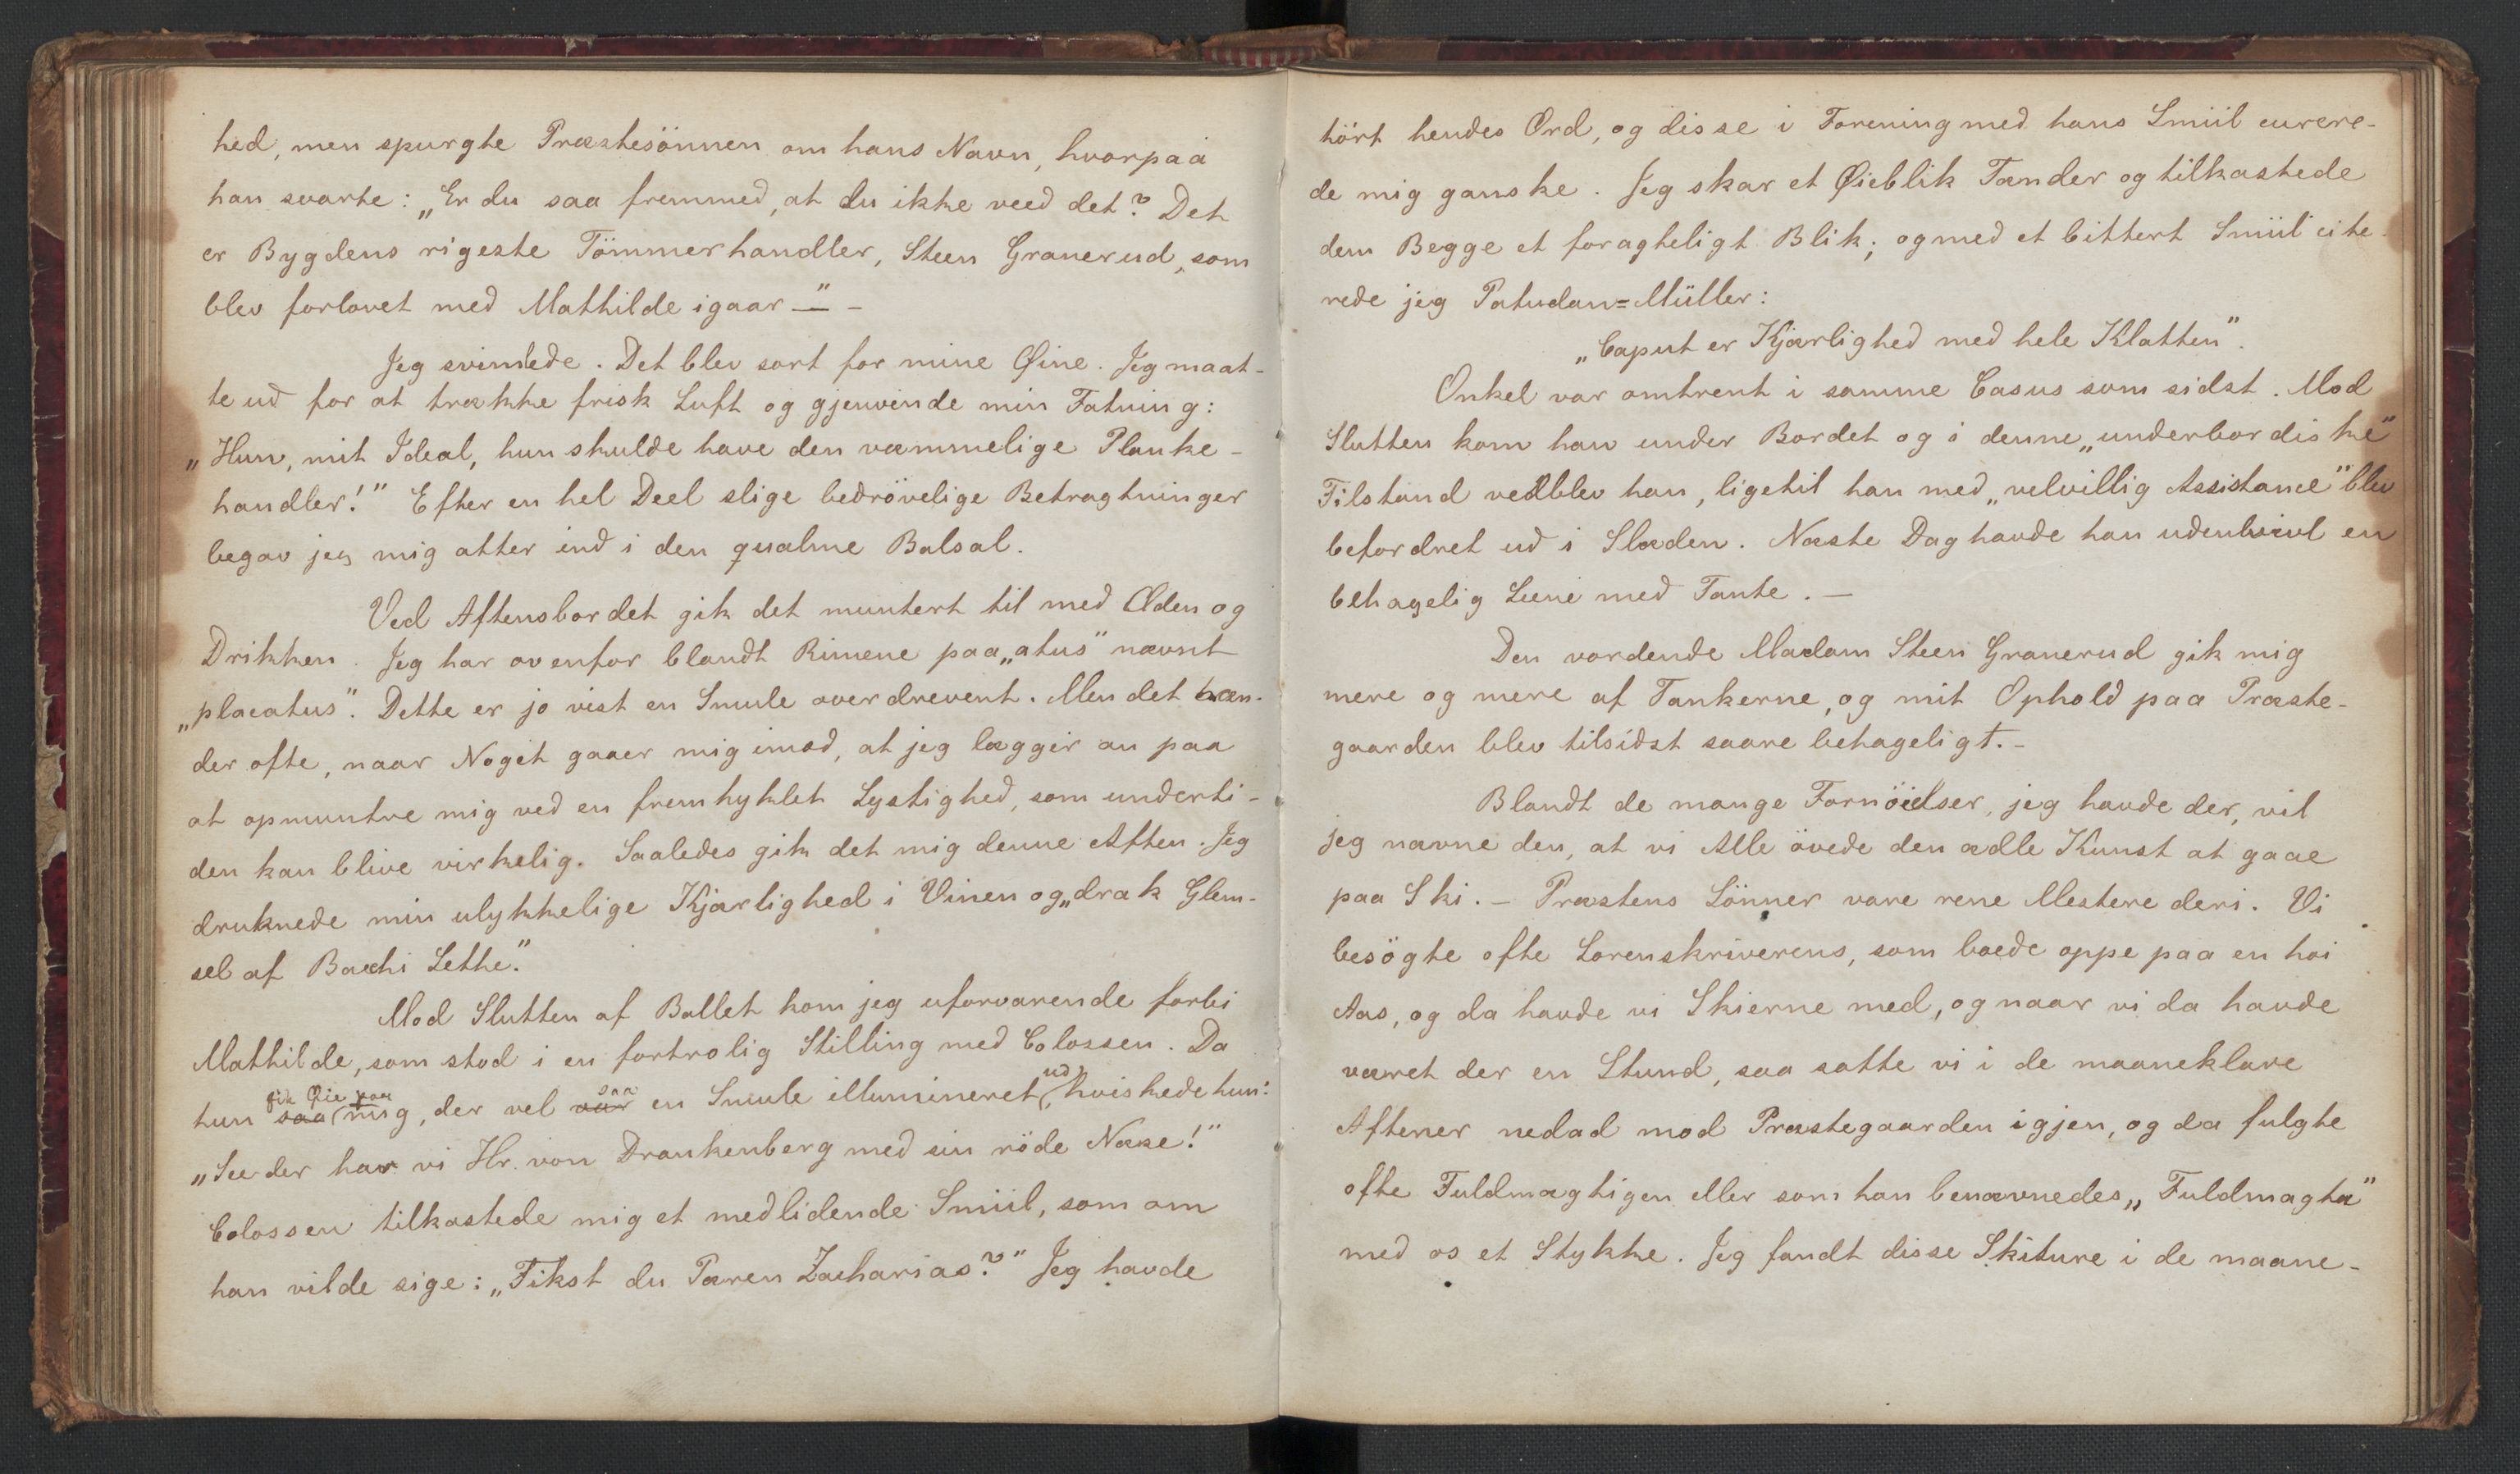 hed, men spurgte Præstesönnen om hans Navn, hvorpaa
han svarte: „Er du saa fremmed, at du ikke veed det? Det
er Bygdens rigeste Tömmerhandler, Steen Granerud, som
blev forlovet med Mathilde igaar —" –
Jeg svimlede. Det blev sort for mine Øine. Jeg maat-
te ud for at trække frisk Luft og gjenvinde min Fatning:
„Hun, mit Ideal, hun skulde have den væmmelige Planke-
handler!" Efter en hel Deel slige bedrövelige Betragtninger
begav jeg mig atter ind i den qvalme Balsal.
Ved Aftensbordet gik det muntert til med Æden og
Drikken. Jeg har ovenfor blandt Rimene paa „atus" nævnt
„placatus". Dette er jo vist en Smule overdrevent. Men det hæn-
der ofte, naar Noget gaaer mig imod, at jeg lægger an paa
at opmuntre mig ved en fremhyklet Lystighed, som underti-
den kan blive virkelig. Saaledes gik det mig denne Aften. Jeg
druknede min ulykkelige Kjærlighed i Vinen og „drak Glem-
sel af Bacchi Lethe."
Mod Slutten af Ballet kom jeg uforvarende forbi
Mathilde, som stod i en fortrolig Stilling med Colossen. Da
hun saa fik Øie paa mig, der vel var saa en Smule illumineret ud, hviskede hun:
„See der har vi Hr. von Drankenberg med sin röde Næse!"
Colossen tilkastede mig et medlidende Smiil, som om
han vilde sige: „Fikst du Pæren Zacharias?" Jeg havde
hört hendes Ord, og disse i Forening med hans Smiil curere-
de mig ganske. Jeg skar et Øieblik Tænder og tilkastede
dem Begge et foragteligt Blik; og med et bittert Smiil cite-
rede jeg Paludan=Müller:
„Caput er Kjærlighed med hele Klatten".
Onkel var omtrent i samme Casus som sidst. Mod
Slutten kom han under Bordet og i denne „underbordiske"
Tilstand vedblev han, ligetil han med „velvillig Assistance" blev
befordret ud i Slæden. Næste Dag havde han udentvivl en
behagelig Scene med Tante. —
Den vordende Madam Steen Granerud gik mig
mere og mere af Tankerne, og mit Ophold paa Præste-
gaarden blev tilsidst saare behageligt. –
Blandt de mange Fornöielser, jeg havde der, vil
jeg nævne den, at vi Alle övede den ædle Kunst at gaae
paa Ski. – Præstens Sönner vare rene Mestere deri. Vi
besögte ofte Sorenskriverens, som boede oppe paa en höi
Aas, og da havde vi Skierne med, og naar vi da havde
været der en Stund, saa satte vi i de maaneklare
Aftener nedad mod Præstegaarden igjen, og da fulgte
ofte Fuldmægtigen eller som han benævnedes „Fuldmægta"
med os et Stykke. Jeg fandt disse Skiture i de maane-